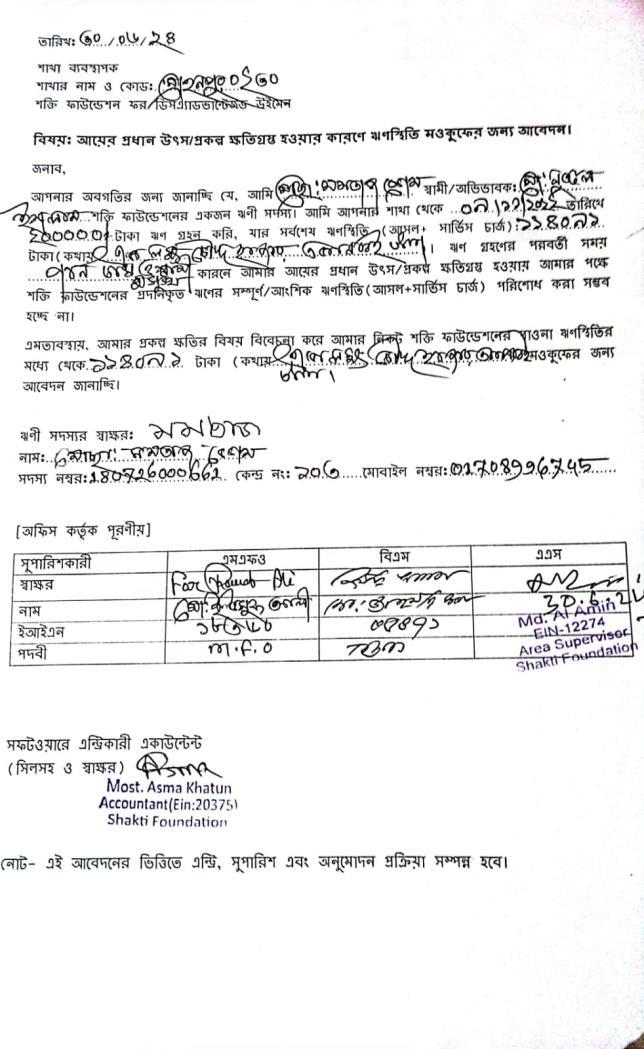 তারিখ: ৩০/০৬/২৪
শাখা ব্যবস্থাপক
শাখার নাম ও কোড:
শক্তি ফাউন্ডেশন ফর ডিসএ্যাডভান্টেজড উইমেন
বিষয়: আয়ের প্রধান উৎস/প্রকল্প ক্ষতিগ্রস্থ হওয়ার কারণে ঋণস্থিতি মওকুফের জন্য আবেদন।
জনাব,
আপনার অবগতির জন্য জানাচ্ছি যে, আমি মোছা: মমতাজ বেগম স্বামী/অভিভাবক:
শক্তি ফাউন্ডেশনের একজন ঋণী সদস্য। আমি আপনার শাখা থেকে তারিখে
২০০০০০/ টাকা ঋণ গ্রহন করি, যার সর্বশেষ ঋণস্থিতি (আসল+ সার্ভিস চার্জ): ১১৪০৭১
টাকা (কথায় এক লক্ষ চৌদ্দ হাজার একাত্তর টাকা। ঋণ গ্রহণের পরবর্তী সময়
কারনে আমার আয়ের প্রধান উৎস/প্রকল্প ক্ষতিগ্রস্থ হওয়ায় আমার পক্ষে
শক্তি ফাউন্ডেশনের প্রদানকৃত ঋণের সম্পূর্ণ/আংশিক ঋণস্থিতি (আসল+সার্ভিস চার্জ) পরিশোধ করা সম্ভব
হচ্ছে না।
এমতাবস্থায়, আমার প্রকল্প ক্ষতির বিষয় বিবেচনা করে আমার নিকট শক্তি ফাউন্ডেশনের পাওনা ঋণস্থিতির
মধ্যে থেকে ১১৪০৭১ টাকা (কথায় এক লক্ষ চৌদ্দ হাজার একাত্তর মওকুফের জন্য
টাকা।
আবেদন জানাচ্ছি।
ঋণী সদস্যর স্বাক্ষর: মমতাজ
নাম: মোছা: মমতাজ বেগম
সদস্য নম্বর: 180726000662 কেন্দ্র নং: ২০৬ মোবাইল নম্বর: 01708996745
[অফিস কর্তৃক পূরণীয়]
সুপারিশকারী এমএফও বিএম এএস
স্বাক্ষর
নাম 30.6.24
ইআইএন
পদবী M.F.O
Md. Al Amin
EIN-12274
Area Supervisor
Shakti Foundation
সফটওয়ারে এন্ট্রিকারী একাউন্টেন্ট
(সিলসহ ও স্বাক্ষর) Asma
Most. Asma Khatun
Accountant(Ein:20375)
Shakti Foundation
নোট- এই আবেদনের ভিত্তিতে এন্ট্রি, সুপারিশ এবং অনুমোদন প্রক্রিয়া সম্পন্ন হবে।